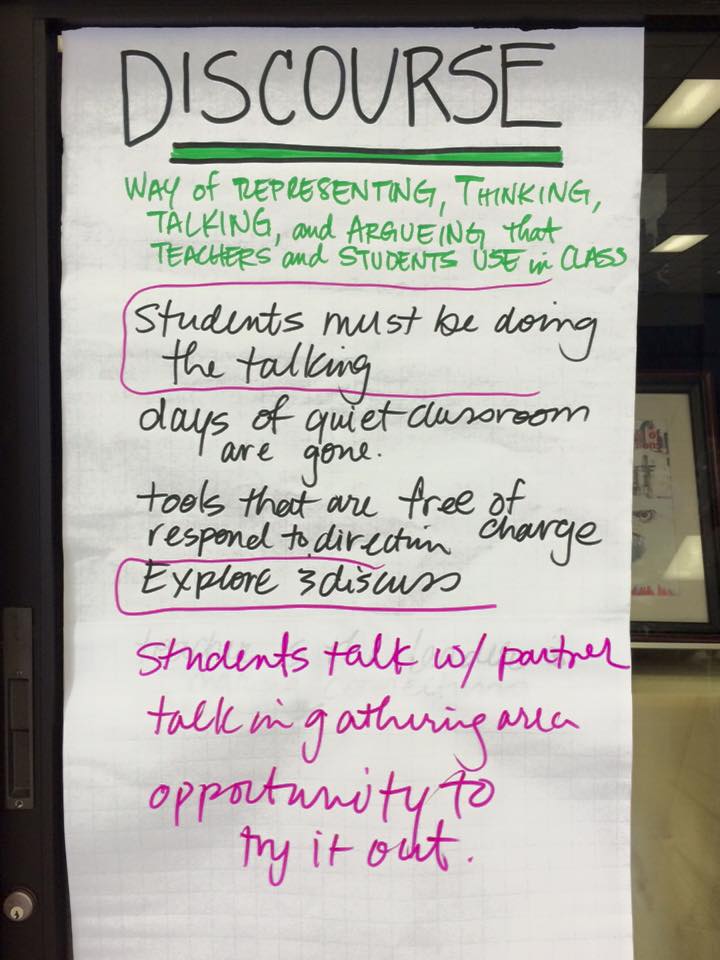 DISCOURSE
WAY of REPRESENTING, THINKING,
TALKING, and ARGUEING that
TEACHERS and STUDENTS USE in CLASS
Students must be doing
the talking
days of quiet classroom
are gone.
tools that are free of
respond to direction charge
Explore & discuss
Students talk w/ partner
talk in gathering area
opportunity to
try it out.